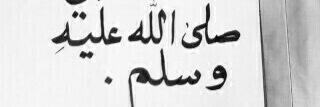 صلى الله عليه
وسلم .